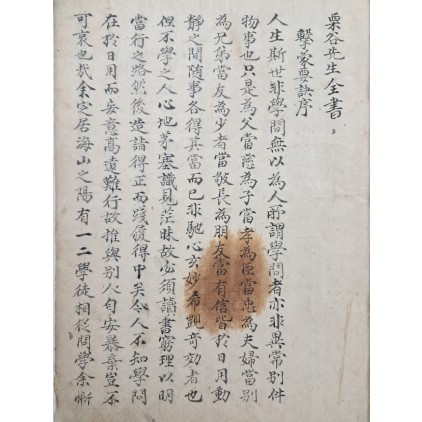 栗谷先生全書
擊蒙要訣序
人生斯世非學問無以為人所謂學問者亦非異常別件
物事也只是為父當慈為子當孝為臣當忠為夫婦當別
為兄弟當友為少者當敬長為朋友當有信皆於日用動
靜之間隨事各得其當而已非馳心玄妙希覬奇效者也
但不學之人心地茅塞識見茫昧故必須讀書窮理以明
當行之路然後造詣得正而踐履得中矣今人不知學問
在於日用而妄意高遠難行故推與別人自安暴棄豈不
可哀也哉余定居海山之陽有一二學徒相從問學余慚